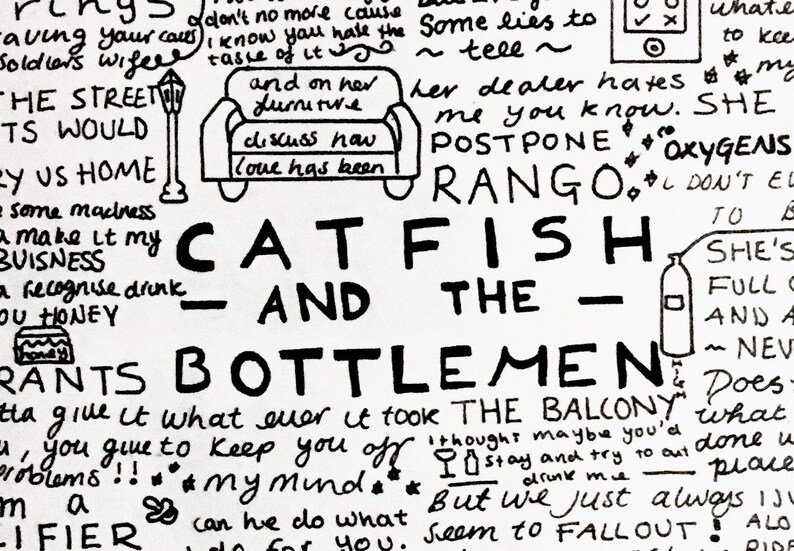 don't no more cause
i know you hate the
taste of it
aving your cares
soldiers wife
Some lies to
~ tell ~
to kee
my
and on her
furniture
discuss how
love has been
her dealer hates
me you know. SHE
POSTPONE
OXYGENS
RANGO
I DON'T EV
TO B
THE STREET
TS WOULD
RY US HOME
some madness
a make it my
BUISNESS
a recognise drink
OU HONEY
honey
CATFISH
— AND THE —
BOTTLEMEN
SHE'S
FULL O
AND A
~ NEV
HIGH
RANTS
Does
tta give it what ever it took THE BALCONY
what
u, you give to keep you off
i thought maybe you'd
stay and try to out
drink me
done w
place
problems!!
my mind
But we just always
m a
IFIER
can he do what
I do for you.
seem to FALLOUT!
ALO
RIDE